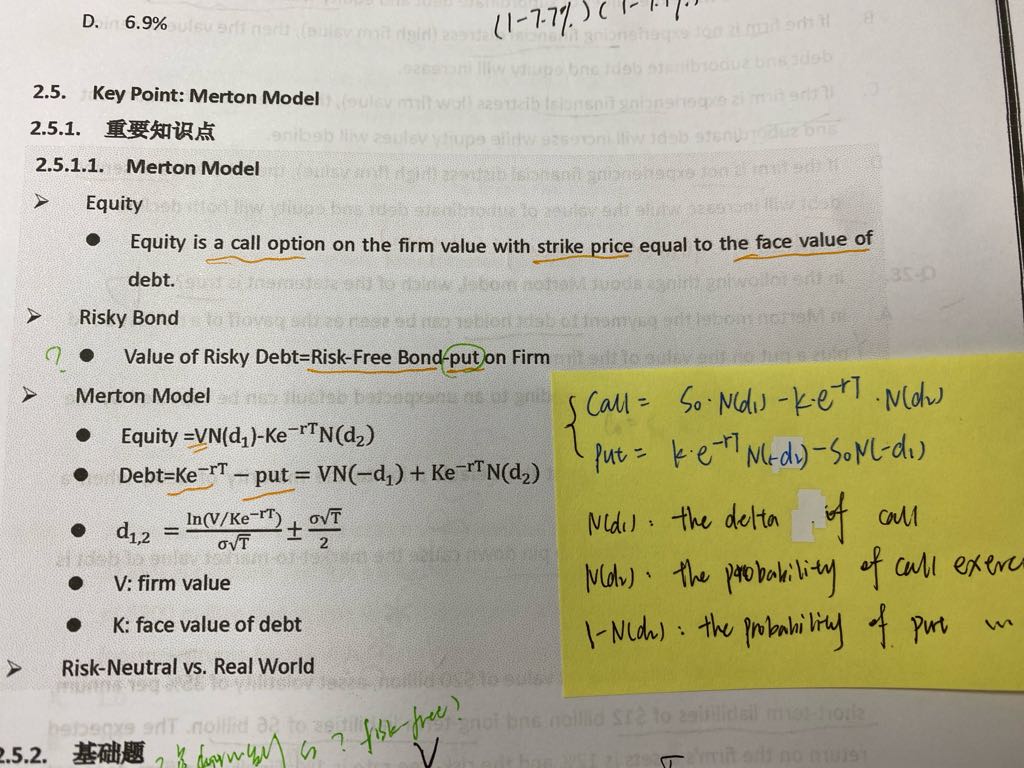 D. 6.9%
(1-7.7%)(1-
2.5. Key Point: Merton Model
2.5.1. 重要知识点
2.5.1.1. Merton Model
➢ Equity
● Equity is a call option on the firm value with strike price equal to the face value of
debt.
➢ Risky Bond
? ● Value of Risky Debt=Risk-Free Bond-put on Firm
➢ Merton Model
● Equity =VN(d₁)-Ke⁻ʳᵀN(d₂)
● Debt=Ke⁻ʳᵀ − put = VN(−d₁) + Ke⁻ʳᵀN(d₂)
● d₁,₂ = ln(V/Ke⁻ʳᵀ)/σ√T ± σ√T/2
● V: firm value
● K: face value of debt
➢ Risk-Neutral vs. Real World
2.5.2. 基础题
? risk-free?
V
Call = S₀·N(d₁) - k·e⁻ʳᵀ·N(d₂)
Put = k·e⁻ʳᵀ N(-d₂) - S₀N(-d₁)
N(d₁): the delta of call
N(d₂): the probability of call exerc
1-N(d₂): the probability of put